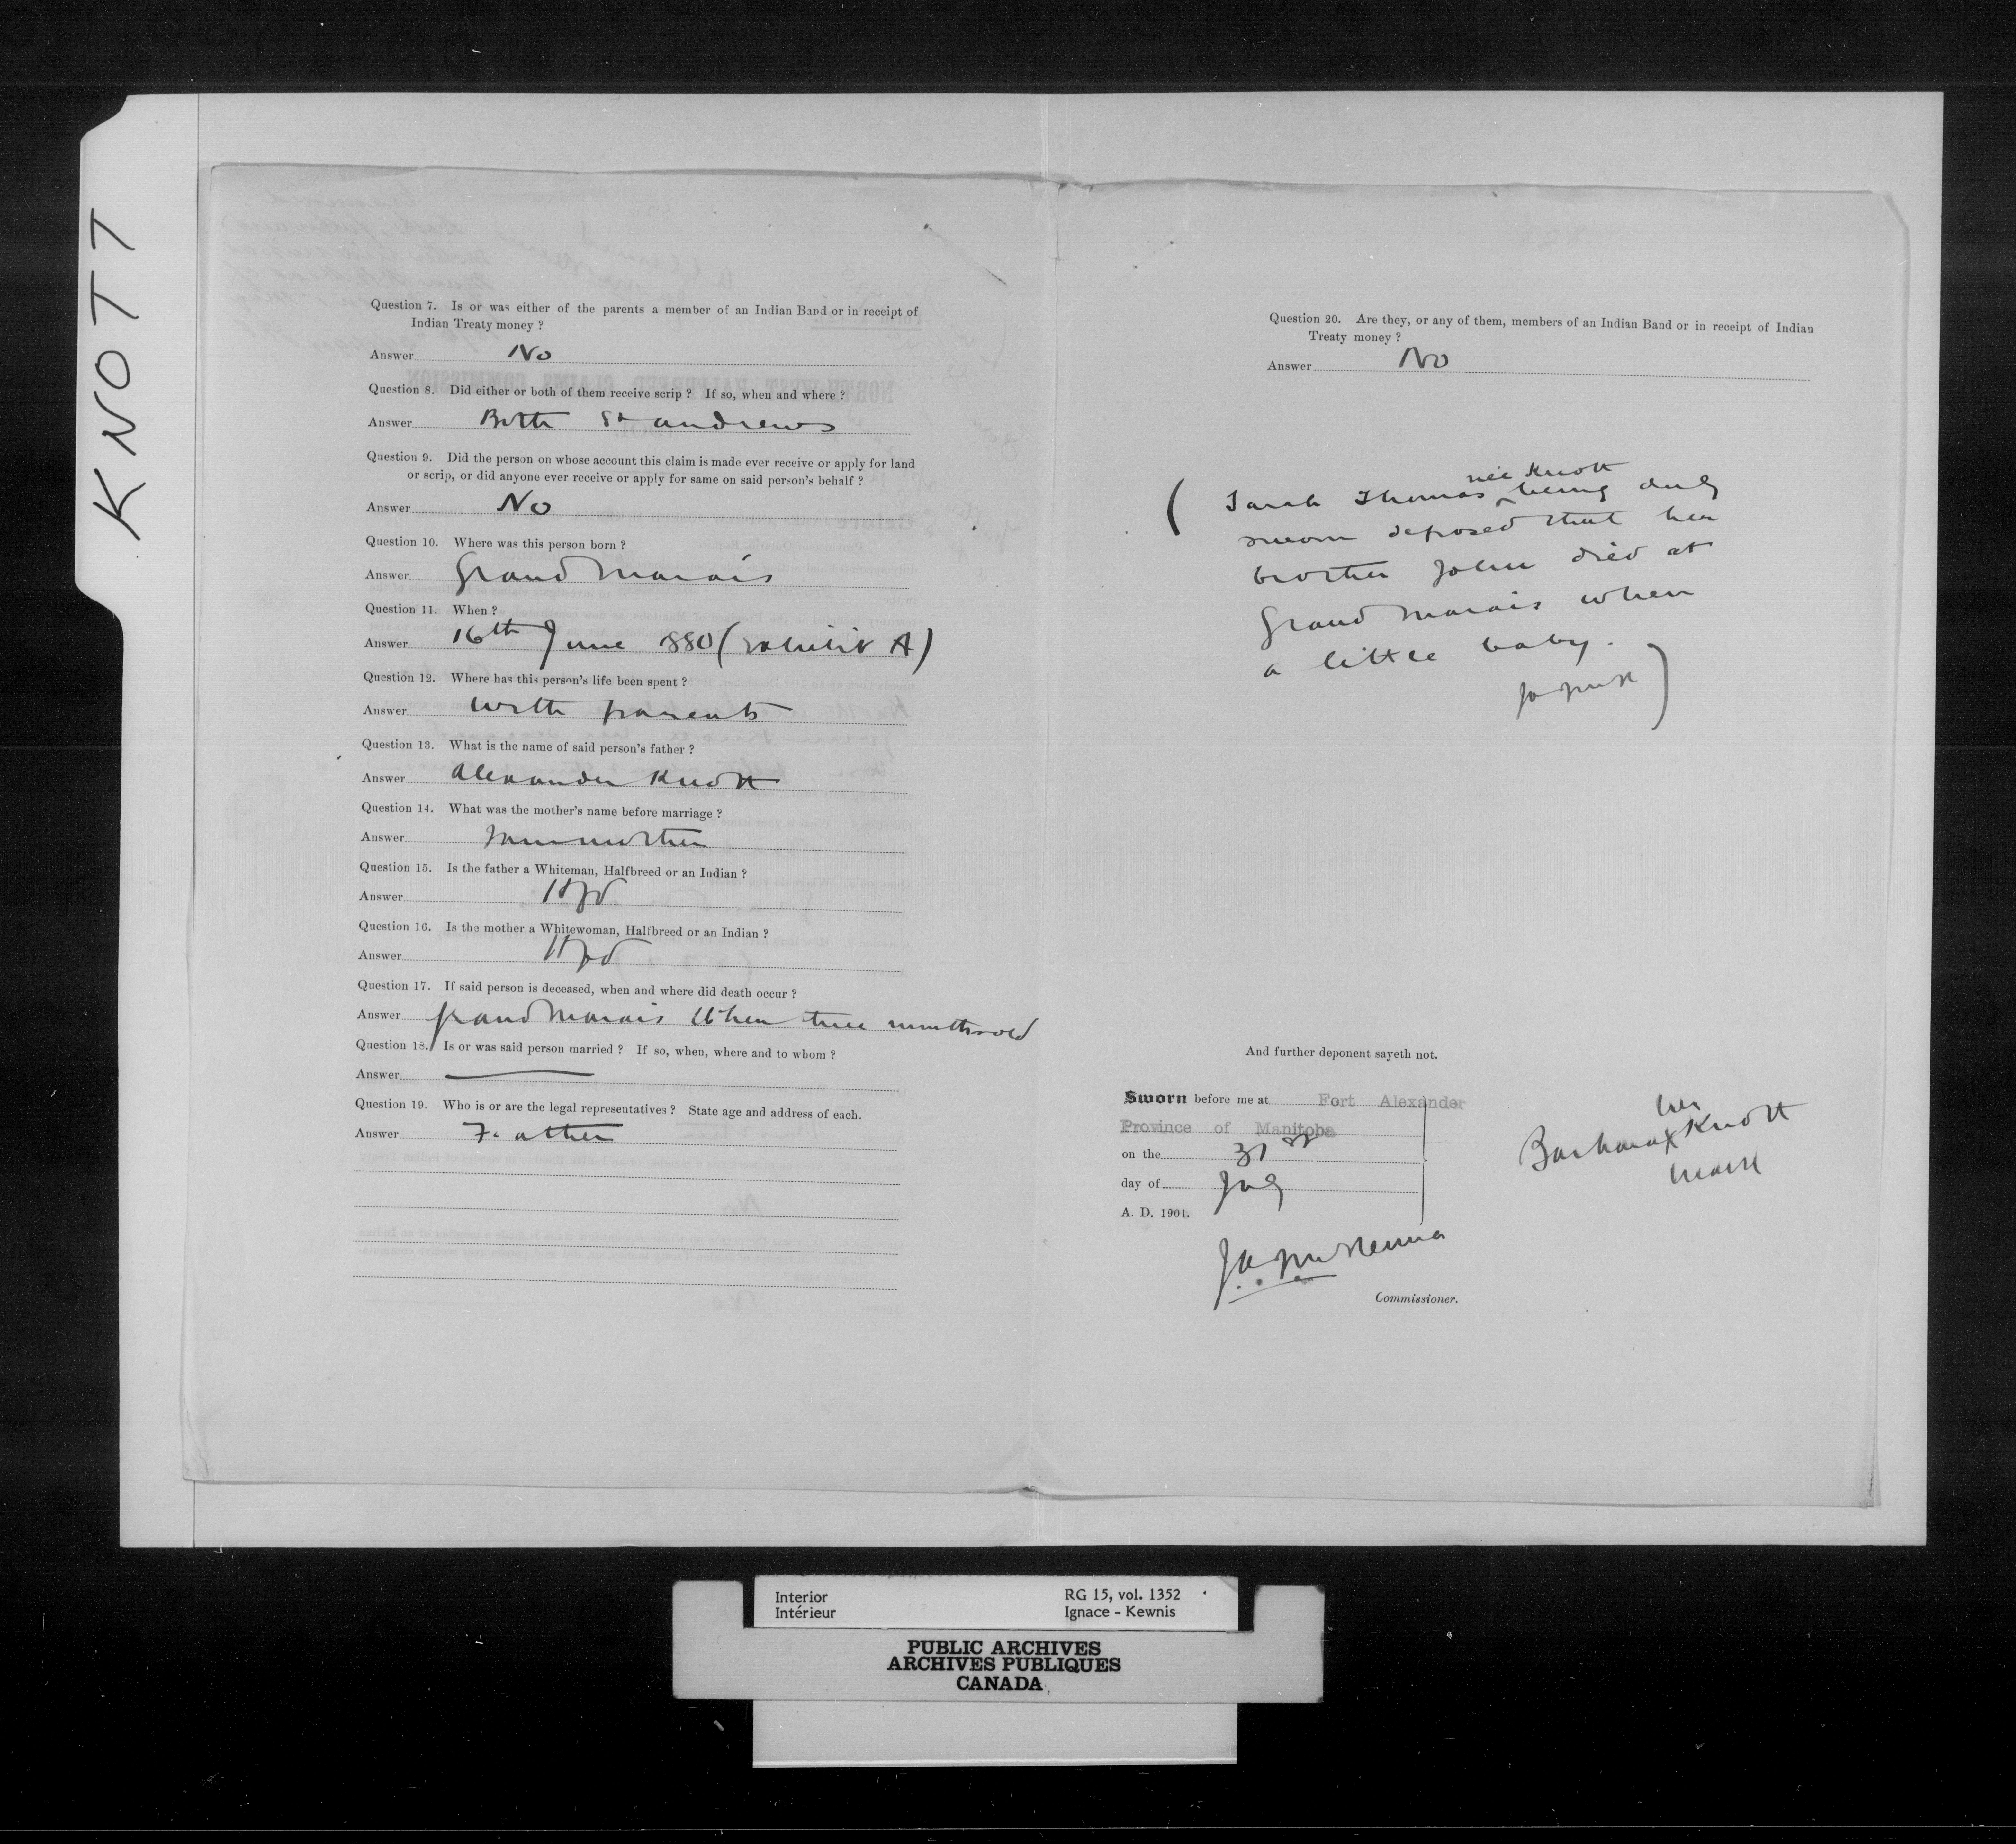 KNOTT
Question 7. Is or was either of the parents a member of an Indian Band or in receipt of
Indian Treaty money ?
Answer No
Question 8. Did either or both of them receive scrip ? If so, when and where ?
Answer Both St andrews
Question 9. Did the person on whose account this claim is made ever receive or apply for land
or scrip, or did anyone ever receive or apply for same on said person's behalf ?
Answer No
Question 10. Where was this person born ?
Answer Grand Marais
Question 11. When ?
Answer 16th June 1880 (Exhibit A)
Question 12. Where has this person's life been spent ?
Answer With parents
Question 13. What is the name of said person's father ?
Answer Alexander Knott
Question 14. What was the mother's name before marriage ?
Answer
Question 15. Is the father a Whiteman, Halfbreed or an Indian ?
Answer Hfbd
Question 16. Is the mother a Whitewoman, Halfbreed or an Indian ?
Answer Hfbd
Question 17. If said person is deceased, when and where did death occur ?
Answer Grand Marais When three months old
Question 18. Is or was said person married ? If so, when, where and to whom ?
Answer
Question 19. Who is or are the legal representatives ? State age and address of each.
Answer Father
Question 20. Are they, or any of them, members of an Indian Band or in receipt of Indian
Treaty money ?
Answer No
née Knott
( Sarah Thomas ‸ being duly
sworn deposed that her
brother John died at
Grand Marais when
a little baby.
JA McK )
And further deponent sayeth not.
Sworn before me at Fort Alexander
Province of Manitoba
on the 31st
day of July
A. D. 1901.
JA McKenna
Commissioner.
her
Barbara X Knott
mark
Interior
Intérieur
RG 15, vol. 1352
Ignace - Kewnis
PUBLIC ARCHIVES
ARCHIVES PUBLIQUES
CANADA